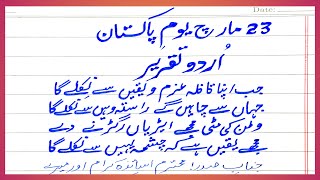 Date:
23 مارچ یومِ پاکستان
اُردو تقریر
جب اپنا قافلہ عزم و یقیں سے نکلے گا
جہاں سے چاہیں گے راستہ وہیں سے نکلے گا
وطن کی مٹی مجھے ایڑیاں رگڑنے دے
مجھے یقیں ہے کہ چشمہ یہیں سے نکلے گا
جنابِ صدر! محترم اساتذہ کرام اور میرے